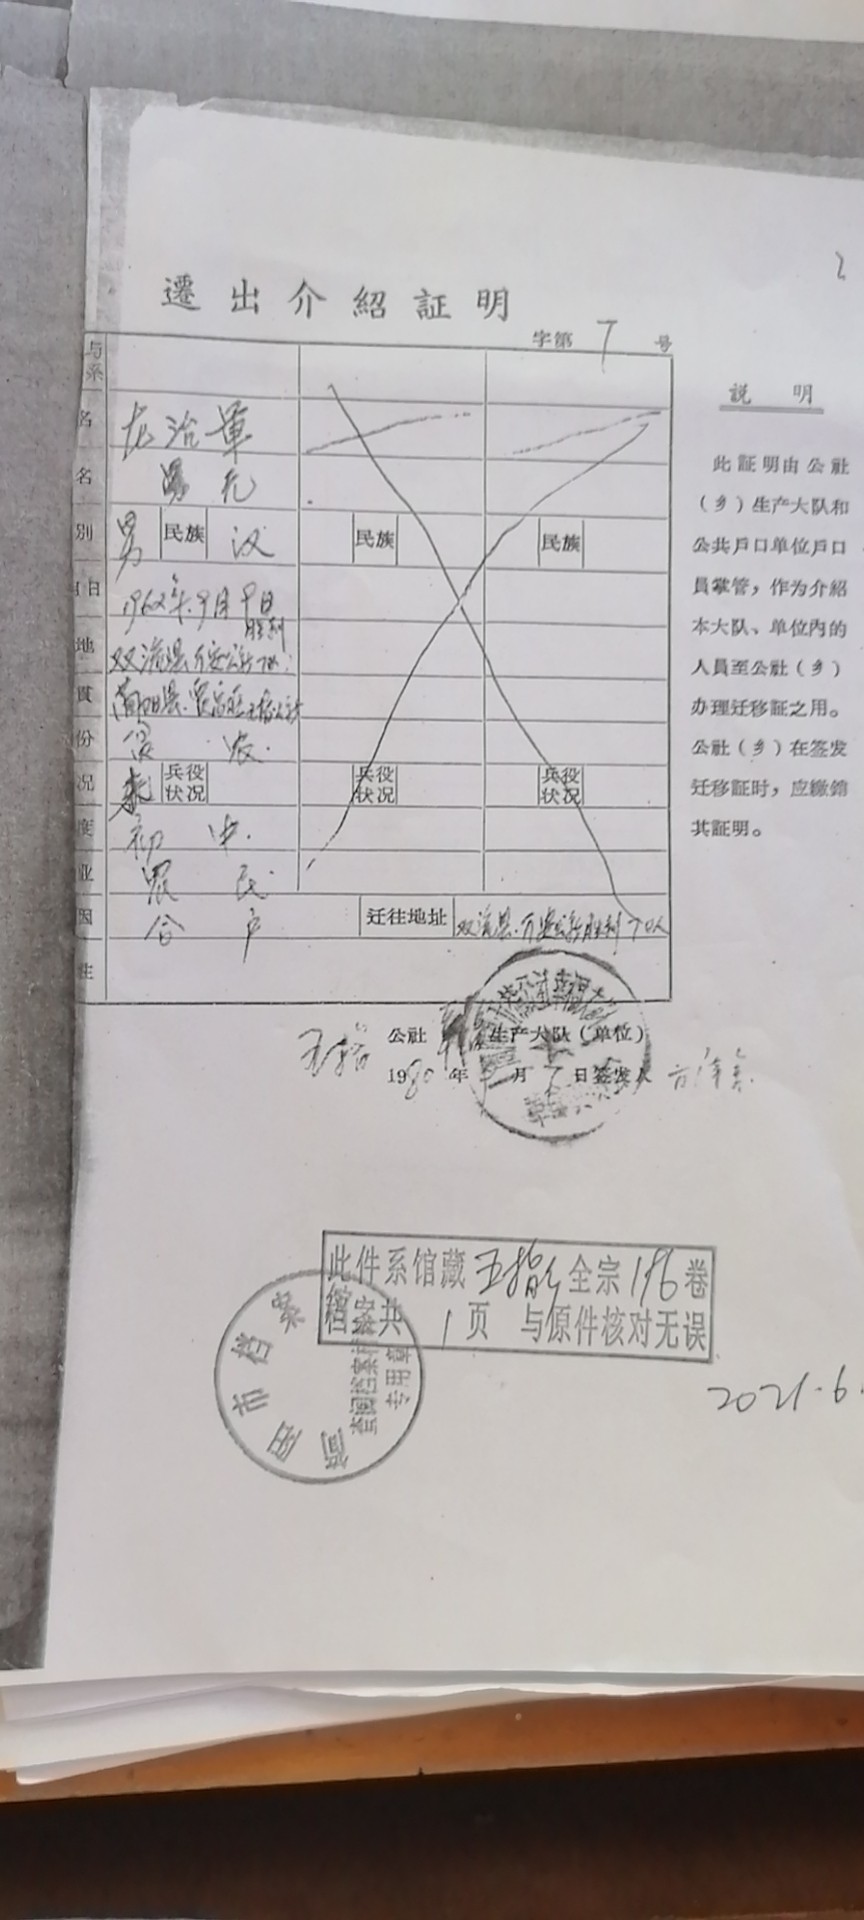 2
遷出介紹証明
字第 7 号
与
系
名 治军
名 无
别 男 民族 汉 民族 民族
日 1962年.9月9日
地 胜利
双流县
貫 公社
份 农.
况 未 兵役状况 兵役状况 兵役状况
度 初 中.
业 農 民
因 合 户 迁往地址 双流县.万安公社胜利
注
公社 生产大队（单位）
1980年 月7日签发人
説 明
此証明由公社
（乡）生产大队和
公共戶口单位戶口
員掌管，作为介紹
本大队、单位內的
人員至公社（乡）
办理迁移証之用。
公社（乡）在签发
迁移証时，应繳銷
其証明。
此件系馆藏 五指公社 全宗 196 卷
档案共 1 页 与原件核对无误
简阳市档案馆
查阅档案
专用章
2021.6.